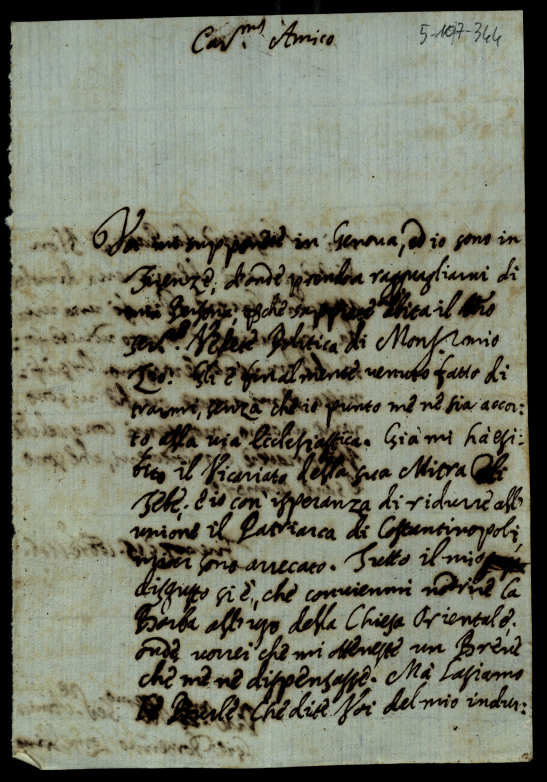 Car.mo Amico
5-197-344
Voi mi supponete in Genova, ed io sono in
Firenze, donde prendea ragguagliarmi di
mia
Vedete Politica di Mons.r mio
Zio. Gli è finalmente venuto fatto di
trarmi, senza che io punto me ne sia accor:
to alla via Ecclesiastica. Già mi hà esi:
bito il Vicariato della sua Mitra di
Tebe, e io con isperanza di ridurre all'
unione il Patriarca di Costantinopoli,
sono arrecato. Tutto il mio
disgusto si è, che conviemmi nodrire la
Barba all'uso della Chiesa Orientale,
onde vorrei che mi otteneste un Breve
che me ne dispensasse. Mà lasciamo
le Burle. Che dite Voi del mio indu: